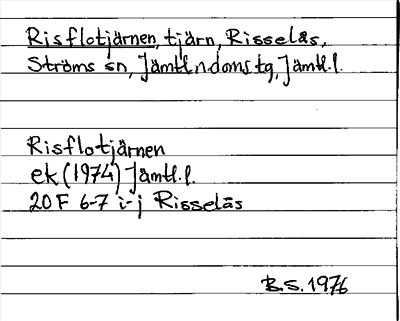 Risflotjärnen, tjärn, Risselås,
Ströms sn, Jämtl. n. doms. tg, Jämtl. l.
Risflotjärnen
ek (1974) Jämtl. l.
20 F 6-7 i-j Risselås
B.S. 1976